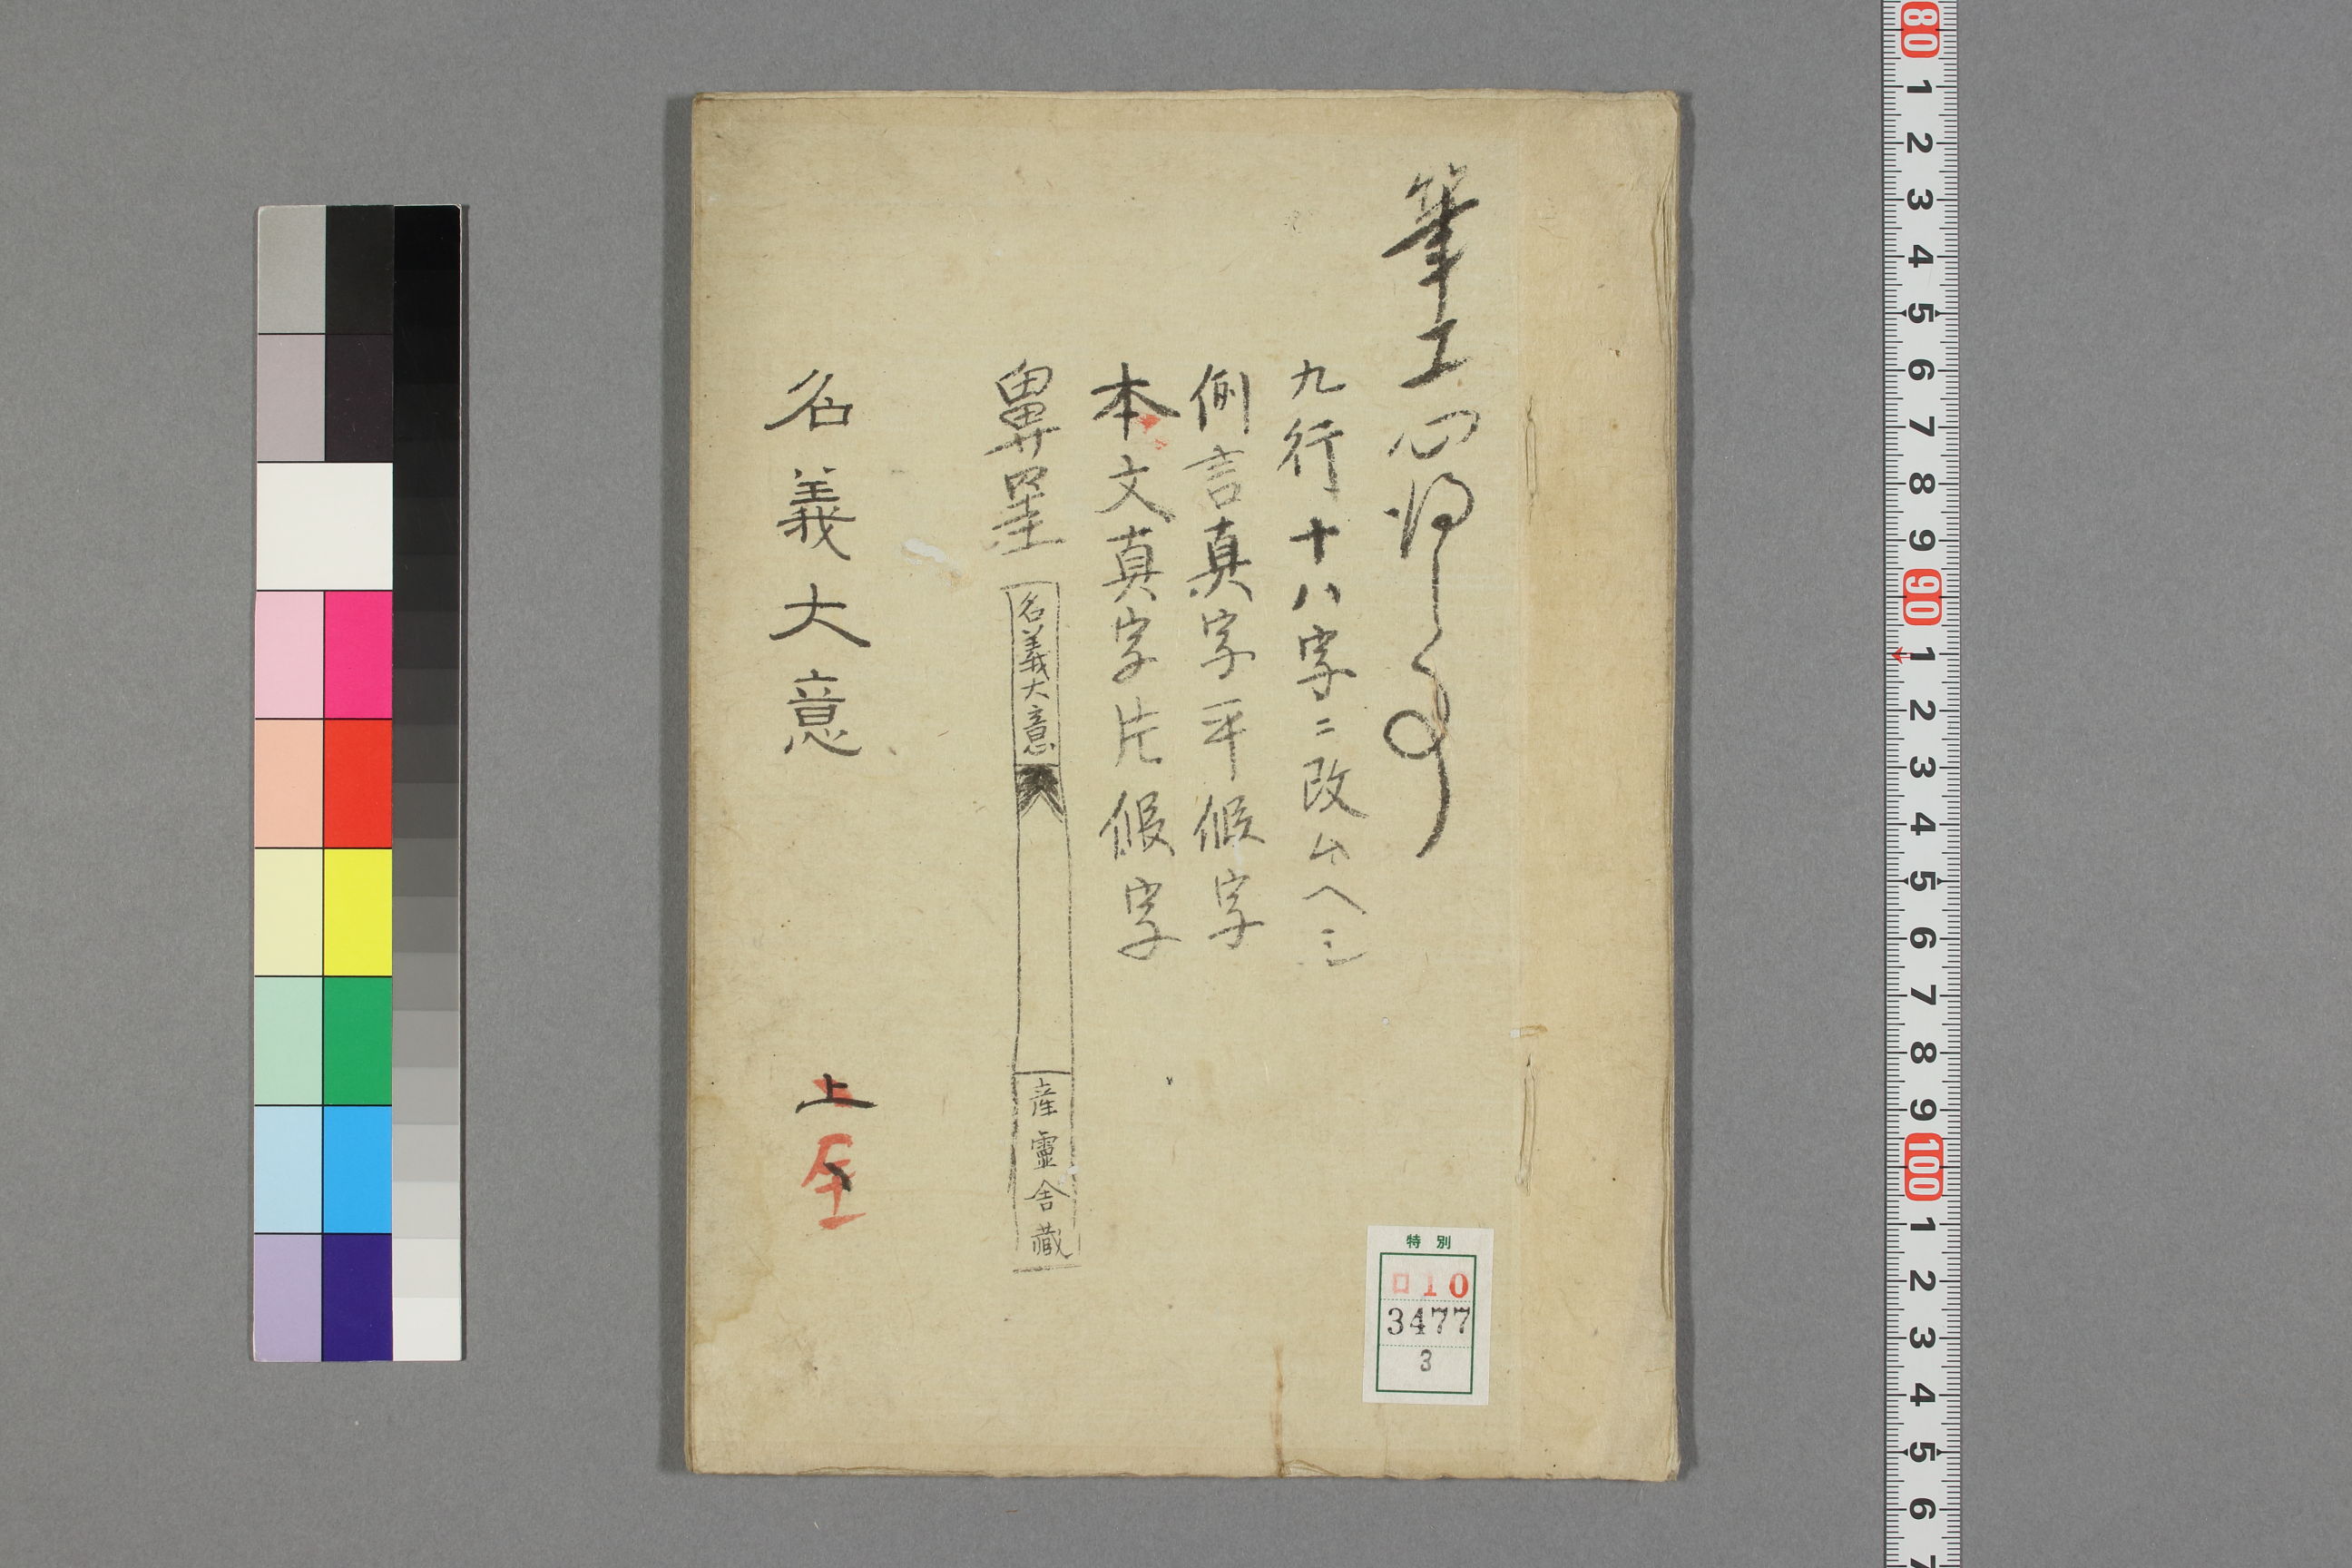 筆工心得之事
九行十八字ニ改ムヘシ
例言真字平假字
本文真字片假字
鼻罣
名義大意
産靈舎藏
名義大意
上
特別
ロ10
3477
3
80 1 2 3 4 5 6 7 8 9 90 1 2 3 4 5 6 7 8 9 100 1 2 3 4 5 6 7